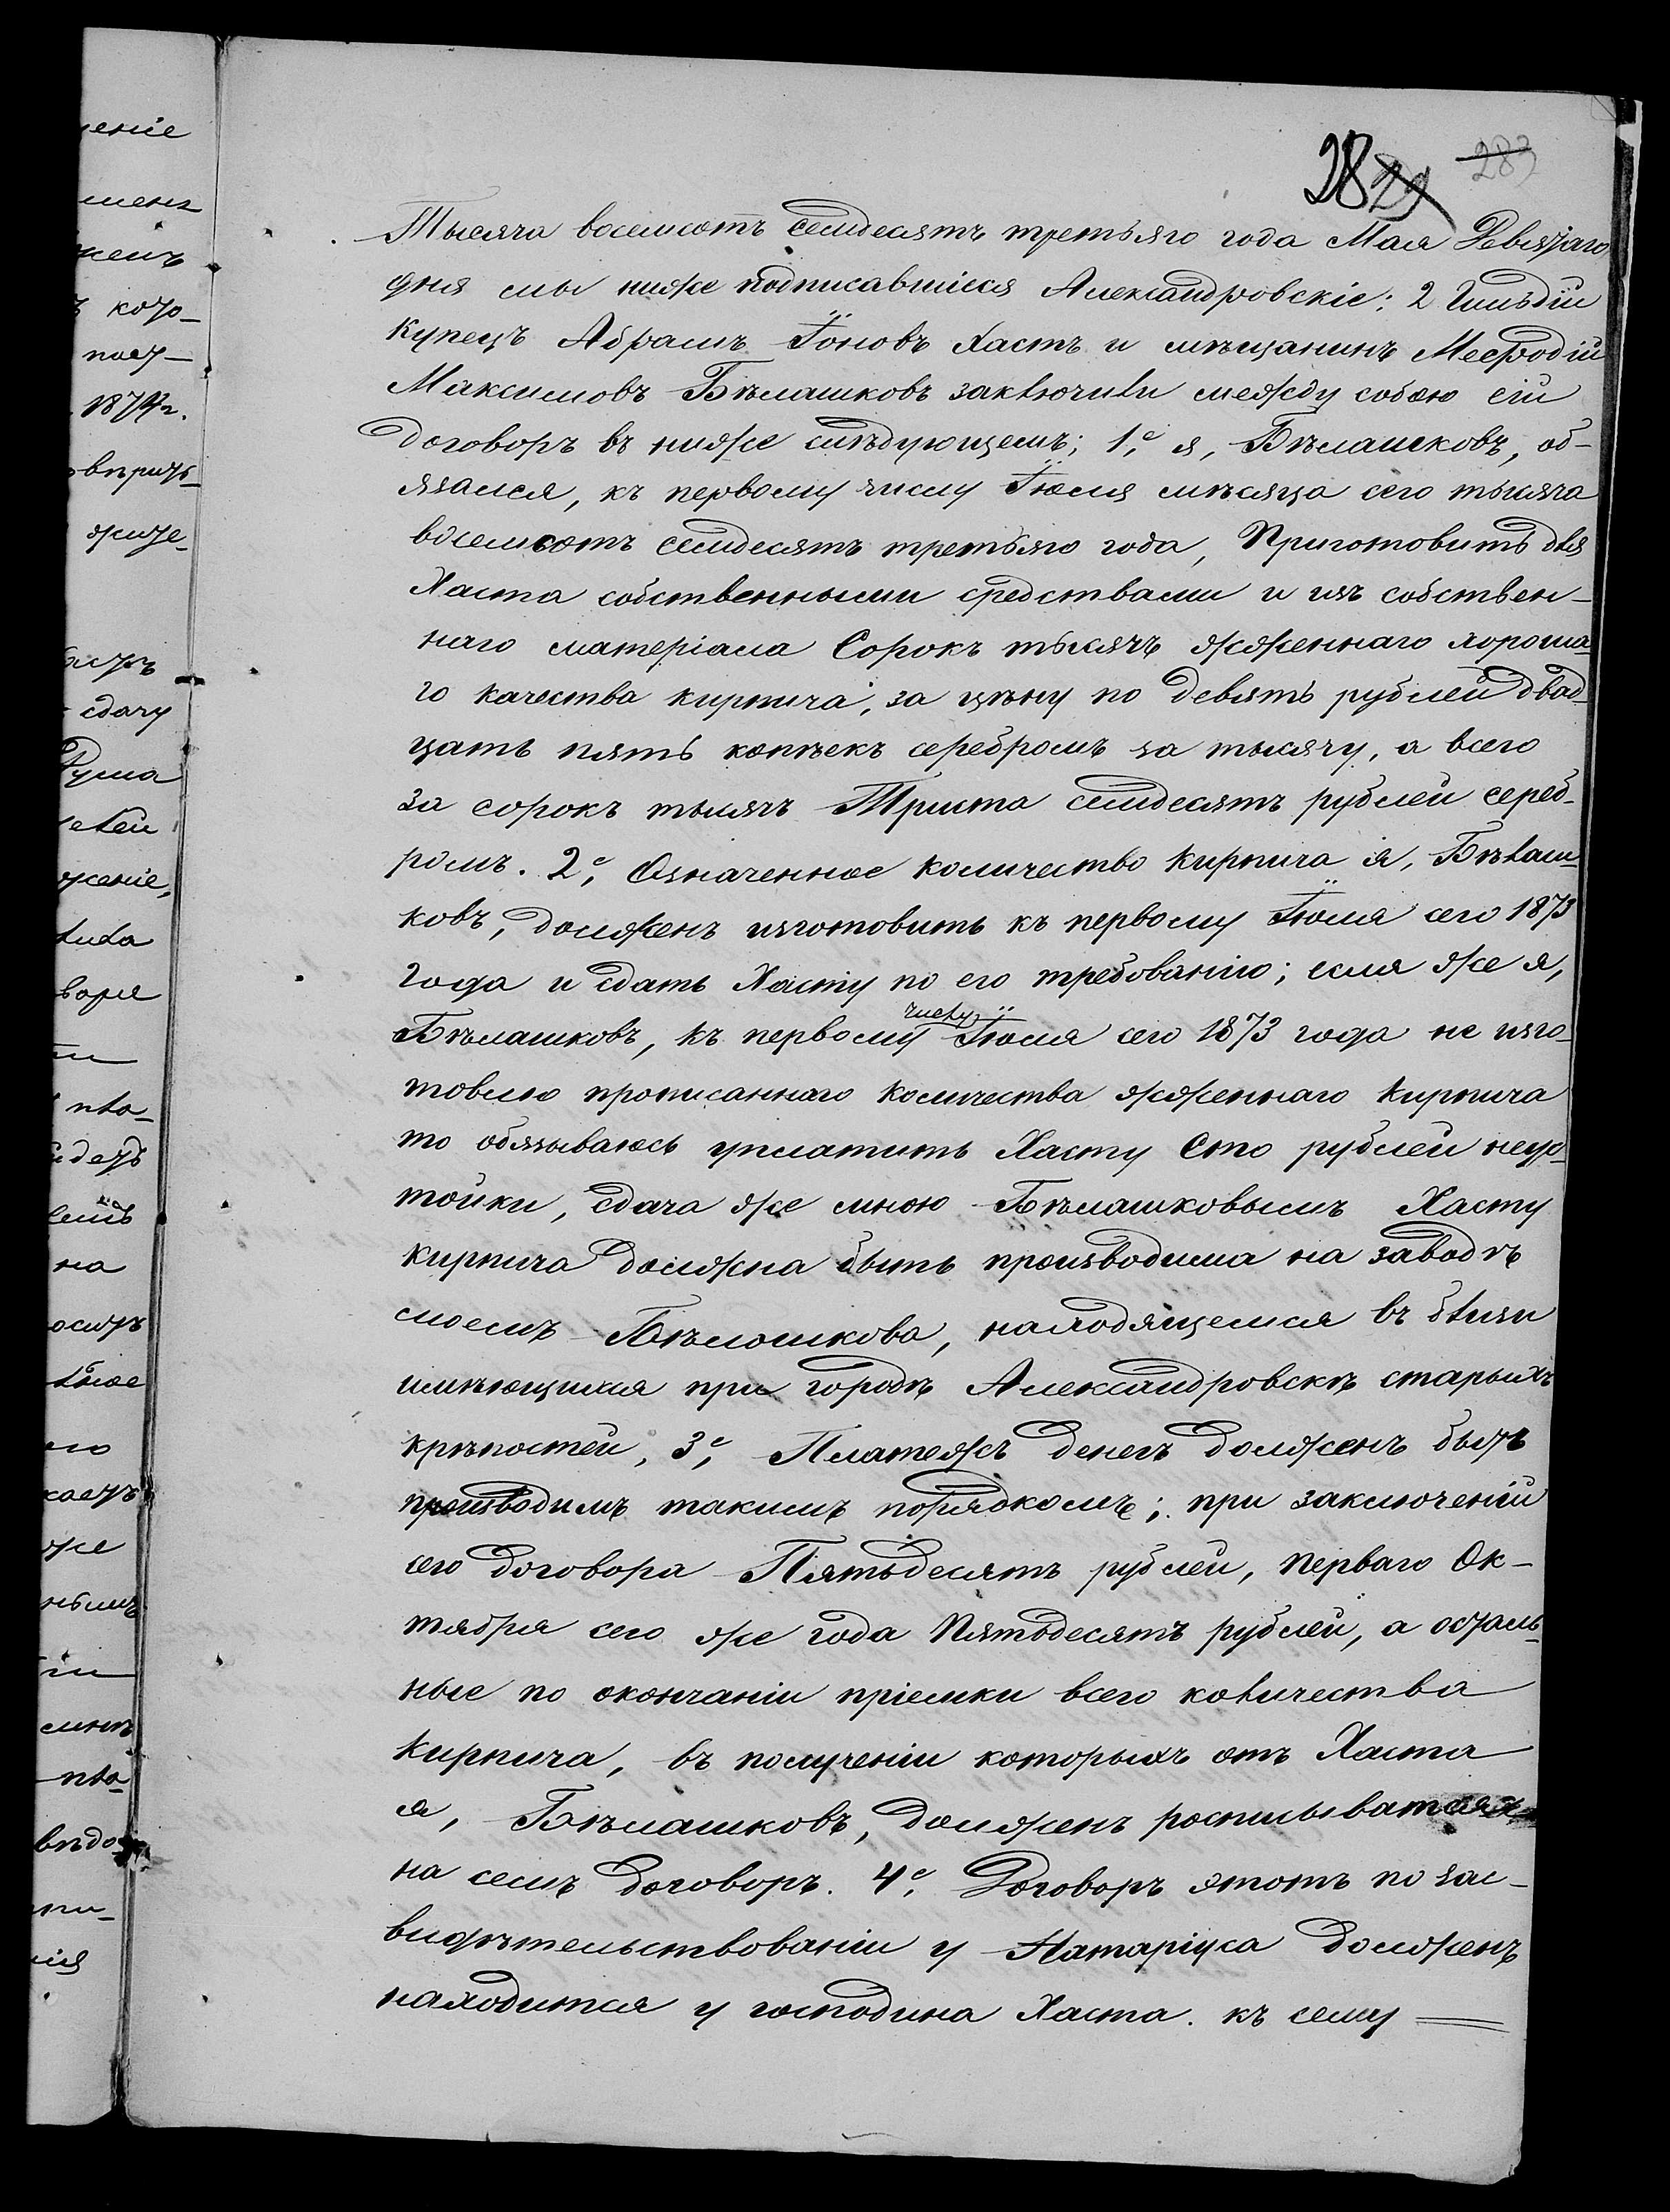 28 29 283
Тысяча восемсотъ семдесятъ третьяго года Мая Девятаго
дня мы ниже подписавшіеся Александровскіе: 2 Гильдіи
купецъ Абрамъ Іоновъ Хастъ и мѣщанинъ Мефодій
Максимовъ Бѣлашковъ заключили между собою сій
договоръ въ ниже слѣдующемъ; 1е, я, Бѣлашковъ, об-
язался, къ первому числу Іюля мѣсяца сего тысяча
восемсотъ семдесятъ третьяго года, Приготовить для
Хаста собственными средствами и изъ собствен-
наго матеріала Сорокъ тысячъ жженнаго хороша-
го качества кирпича, за цѣну по девять рублей двад-
цать пять копѣекъ серебромъ за тысячу, а всего
за сорокъ тысячъ Триста семдесятъ рублей сереб-
ромъ. 2е, Означенное количество кирпича я, Бѣлаш-
ковъ, долженъ изготовить къ первому Іюля сего 1873
года и сдать Хасту по его требованію; если же я,
Бѣлашковъ, къ первому числу Іюля сего 1873 года не изго-
товлю прописаннаго количества жженнаго кирпича
то обязываюсь уплатить Хасту Сто рублей неус-
тойки, сдача же мною Бѣлашковымъ Хасту
кирпича должна быть производима на заводѣ
моемъ Бѣлошкова, находящемся въ близи
имѣющихся при городѣ Александровскѣ старыхъ
крѣпостей, 3е, Платежъ денегъ долженъ быть
производимъ такимъ порядкомъ; при заключеніи
сего договора Пятьдесятъ рублей, перваго Ок-
тября сего же года Пятьдесятъ рублей, а осталь-
ные по окончаніи пріемки всего количества
кирпича, въ полученіи которыхъ отъ Хаста
я, Бѣлашковъ, долженъ росписыватся
на семъ договоръ. 4е, Договоръ этотъ по зас-
видѣтельствованіи у Натаріуса долженъ
находится у господина Хаста. къ сему